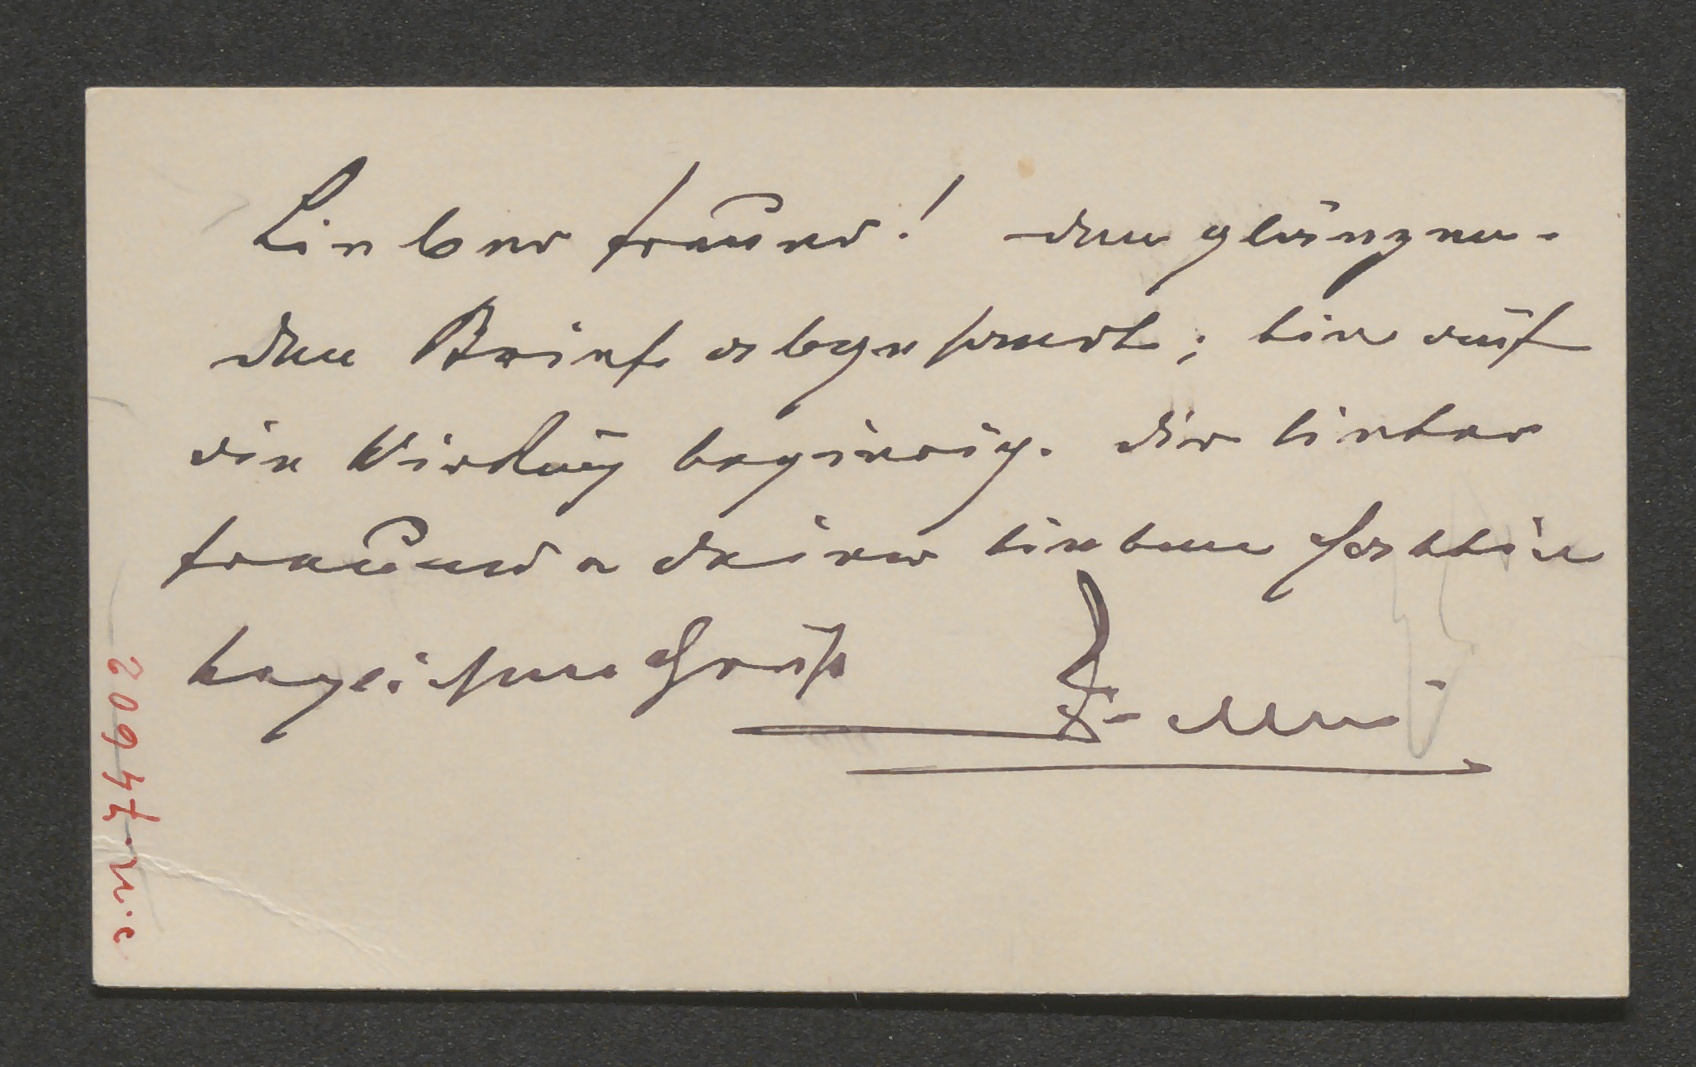 Lieber Freund! Den glänzen-
den Brief abgesandt; bin auf
die Wirkung begierig. Dir lieber
Freund u deiner lieben Gattin
herzlichen Gruß
209474